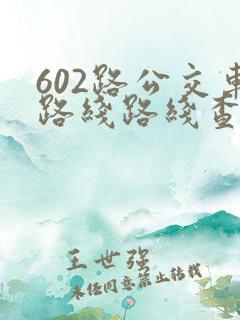 602路公交車
路綫路綫查
王世强
未经同意禁止转载